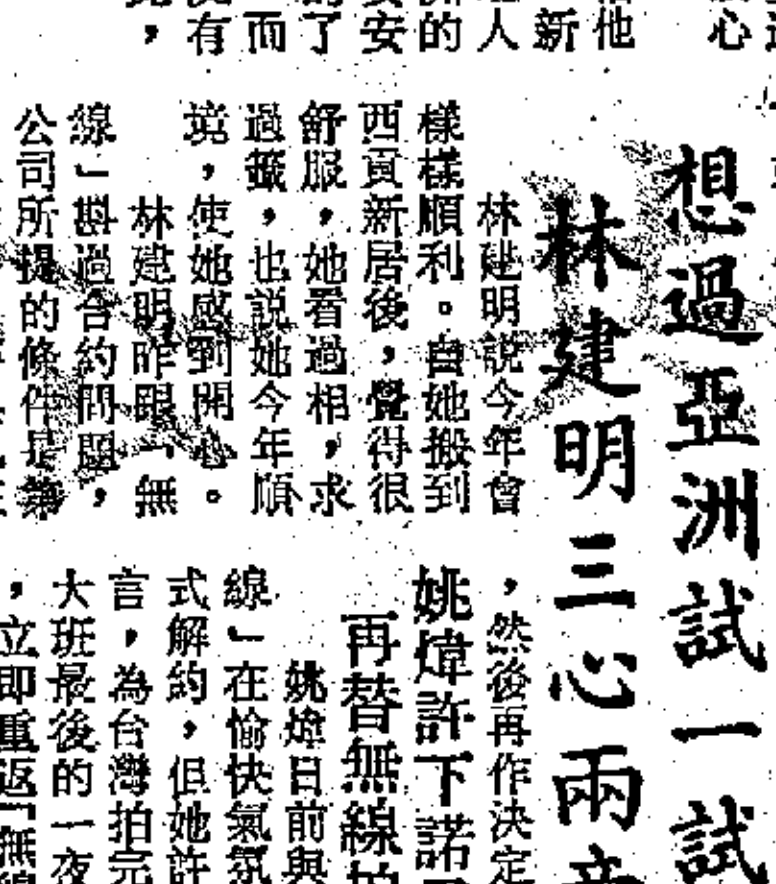 心
他
新
人
的
安
了
而
有
，
想過亞洲試一試
林建明三心兩
林建明説今年會
樣樣順利。自她搬到
西貢新居後，覺得很
舒服，她看過相，求
過籤，也説她今年順
境，使她感到開心。
林建明昨跟「無
線」斟過合約問題，
公司所提的條件是
，然後再作決定
姚煒許下諾
再替無線拍
姚煒日前與
線」在愉快氣氛
式解約，但她許
言，為台灣拍完
大班最後的一夜
，立即重返「無線